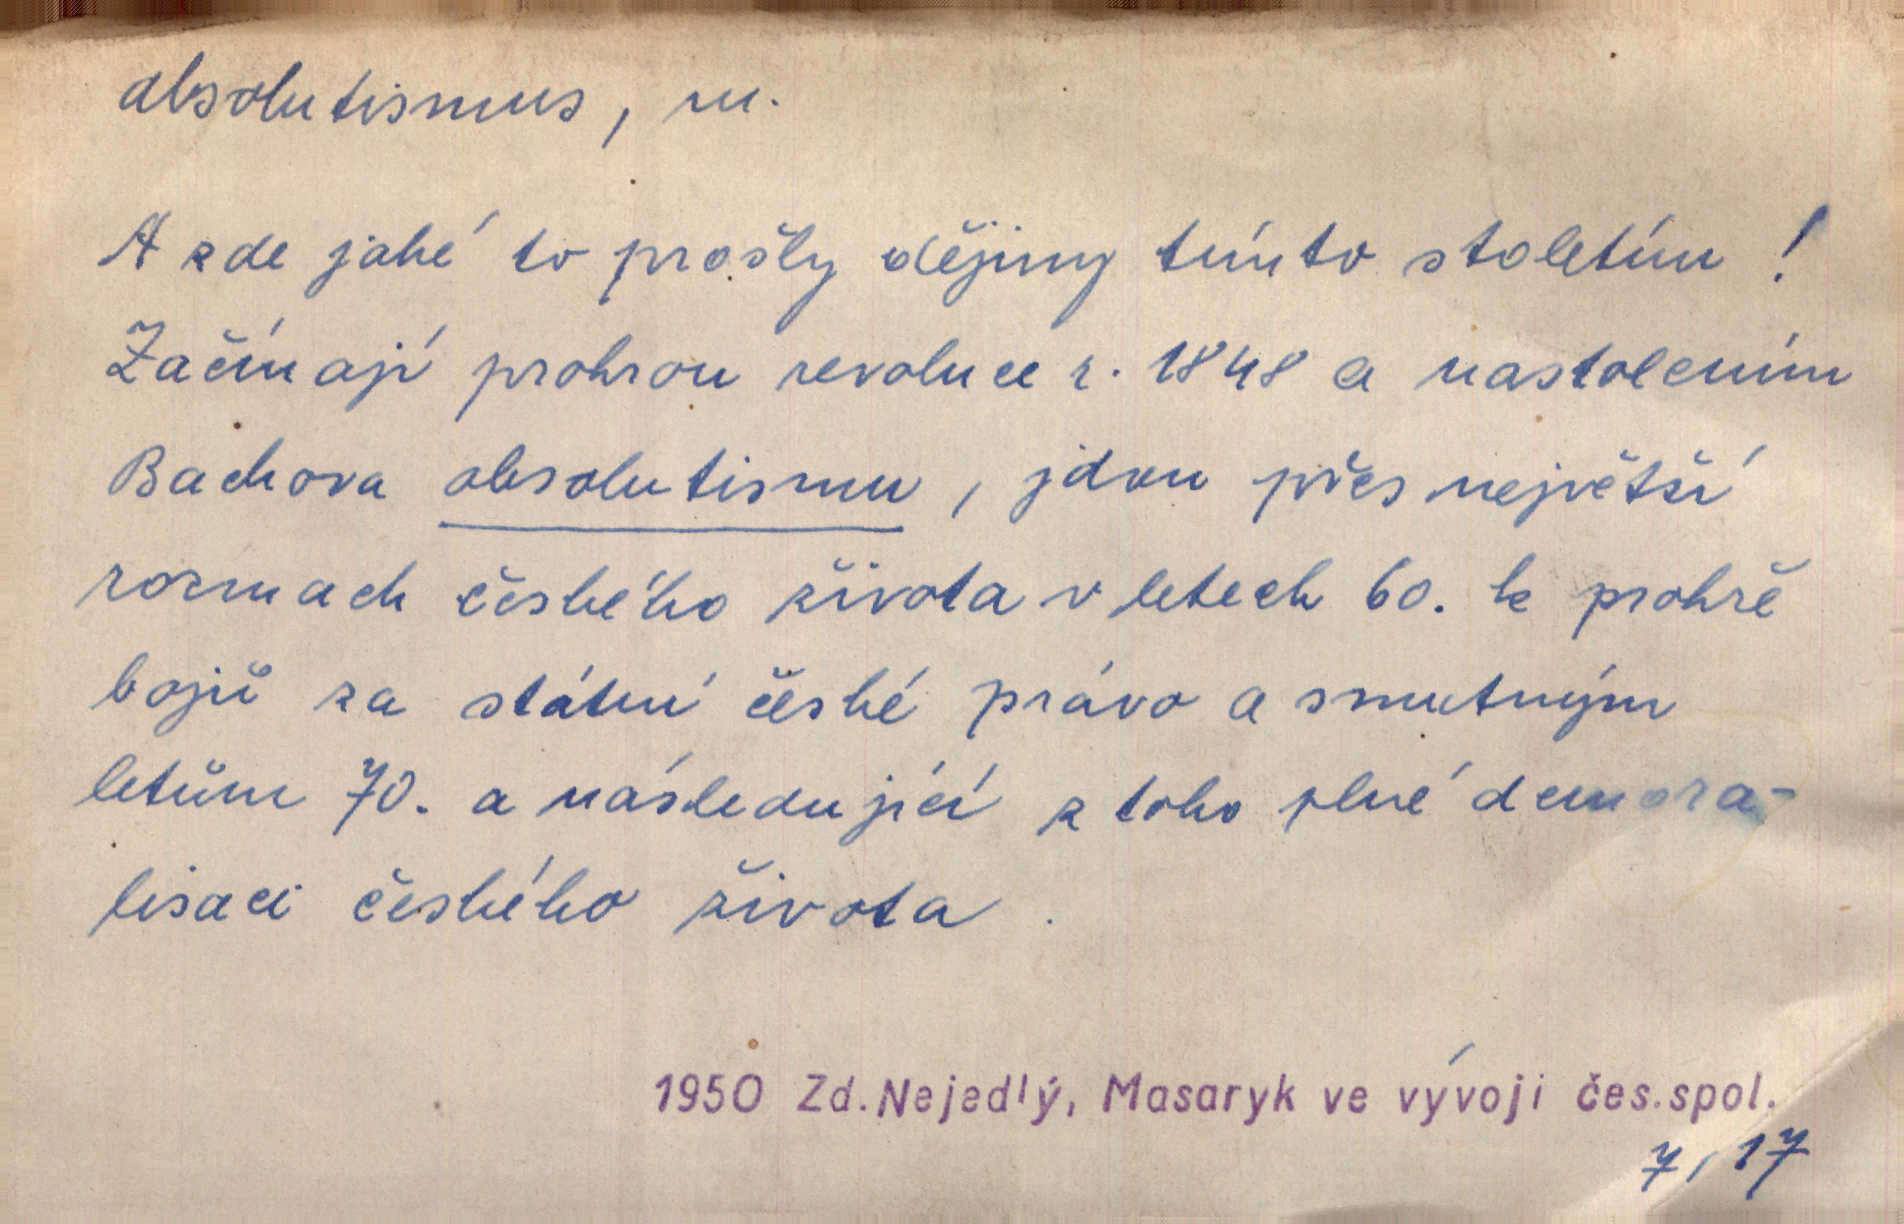 absolutismus, m.
A zde jaké to prošly dějiny tímto stoletím!
Začínají prohrou revoluce r. 1848 a nastolením
Bachova absolutismu, jdou přes největší
rozmach českého života v letech 60. k prohře
bojů za státní české právo a smutným
letům 70. a následující z toho plné demora-
lisaci českého života.
1950 Zd. Nejedlý, Masaryk ve vývoji čes. spol.
7, 17